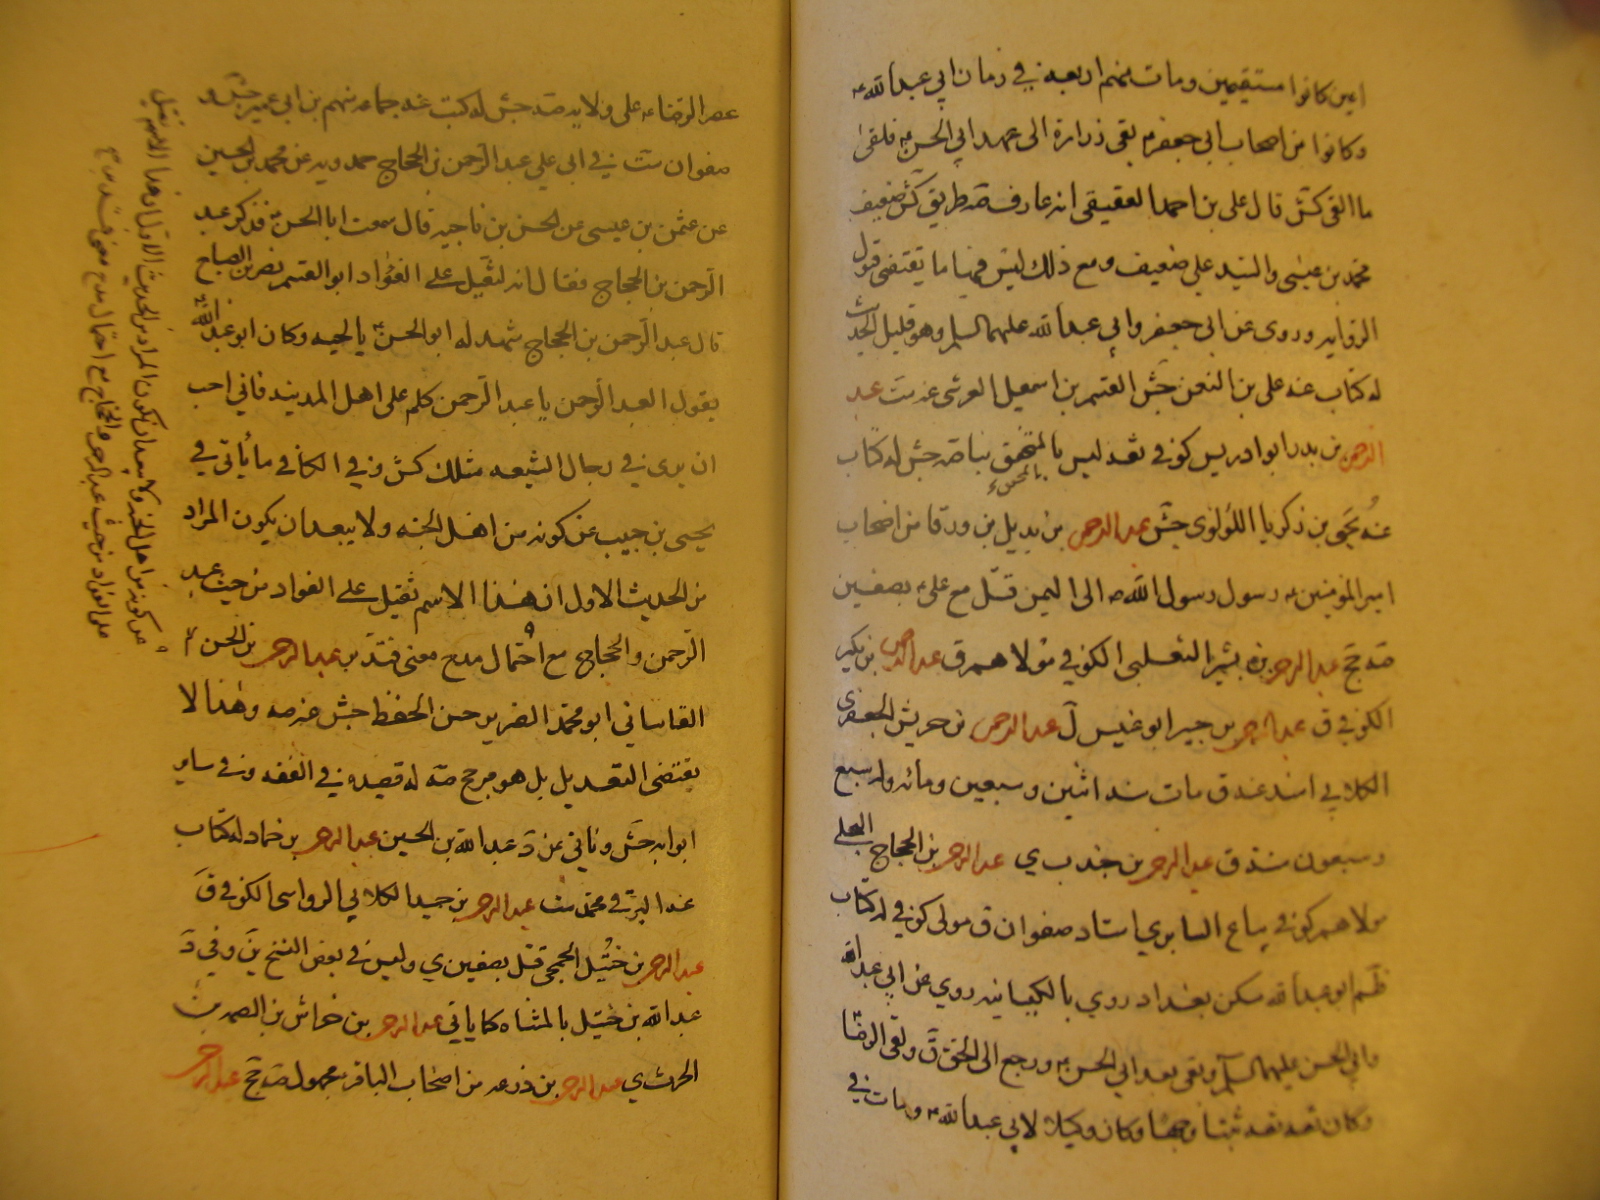 اعين كانوا مستقيمين ومات منهم اربعه في زمان ابي عبدالله ع
وكانوا من اصحاب ابي جعفر ع بقى زرارة الى عهد ابي الحسن ع فلقى
ما القى كش قال علي بن احمد العقيقي انه عارف صه طريق كش ضعيف
محمد بن عيسى والسيد علي ضعيف ومع ذلك ليس فيها ما يقتضى قبول
الرواية وروى عن ابي جعفر وابي عبدالله عليهما السلم وهو قليل الحديث
له كتاب عنه علي بن النعمن جش القسم بن اسمعيل القرشي عنه ست عبد
الرحمن بن بدر ابو ادريس كوفي ثقه ليس بالمتحقق بنا صه جش له كتاب
بالمتحقق
عنه يحيى بن زكريا اللؤلؤي جش عبد الرحمن بن بديل بن ورقا من اصحاب
امير المؤمنين ع رسول رسول الله ص الى اليمن قتل مع علي ع بصفين
صه جخ عبد الرحمن بن بشير التغلبي الكوفي مولاهم ق عبد الرحمن بن بكير
الكوفي ق عبد الرحمن بن جبر ابو عبس ل عبد الرحمن بن حريش الجعفري
الكلابي اسند عنه ق مات سنه اثنين وسبعين ومائه وله سبع
وسبعون سنة ق عبد الرحمن بن جندب ي عبد الرحمن بن الحجاج البجلي
مولاهم كوفي بياع السابري استاد صفوان ق مولى كوفي له كتاب
ظم ابو عبدالله سكن بغداد ورمي بالكيسانيه روي عن ابي عبدالله
وابي الحسن عليهما السلم وبقى بعد ابي الحسن ع ورجع الى الحق ولقى الرضا ع
وكان ثقه ثقه ثبتا وجها وكان وكيلا لابي عبدالله ع ومات في
عصر الرضا ع على ولايته صه جش له كتب عنه جماعه منهم بن ابي عمير جش و
صفوان ست في ابي علي عبد الرحمن بن الحجاج حمدويه عن محمد بن الحسين
عن عثمن بن عيسى عن الحسن بن ناجيه قال سمعت ابا الحسن ع فذكر عبد
الرحمن بن الحجاج فقال انه لثقيل على الفؤاد ابو القسم نصر بن الصباح
قال عبد الرحمن بن الحجاج شهد له ابو الحسن ع بالجنه وكان ابو عبدالله ع
يقول لعبد الرحمن يا عبد الرحمن كلم على اهل المدينه فاني احب
ان يرى في رجال الشيعه مثلك كش وفي الكافي ما يأتي في
يحيى بن حبيب عن كونه من اهل الجنه ولا يبعد ان يكون المراد
من الحديث الاول ان هذا الاسم ثقيل على الفواد من حيث عبد
الرحمن والحجاج مع احتمال مدح معنى فتدبر عبد الرحمن بن الحسن
القاساني ابو محمد الضرير حسن الحفظ جش عنه صه وهذا لا
يقتضى التعديل بل هو مرجح صه له قصيده في الفقه وفي ساير
ابوابه جش وثاني عن د عبدالله بن الحسين عبد الرحمن بن حماد له كتاب
عنه البرقي محمد ست عبد الرحمن بن حميد الكلابي الرواسى الكوفي ق
عبد الرحمن بن خثيل الجمحي قتل بصفين ي وليس في بعض النسخ بن وفي د
عبدالله بن خثيل بالمثناه كما ياتي عبد الرحمن بن خراش بن الصمه بن
الحرث ي عبد الرحمن بن زرعه من اصحاب الباقر ع مجهول صه جخ عبد الرحمن
عن كونه من اهل الجنه ولا يبعد ان يكون المراد من الحديث الاول ان هذا الاسم ثقيل
على الفواد من حيث عبد الرحمن والحجاج مع احتمال مدح معنى فتدبر